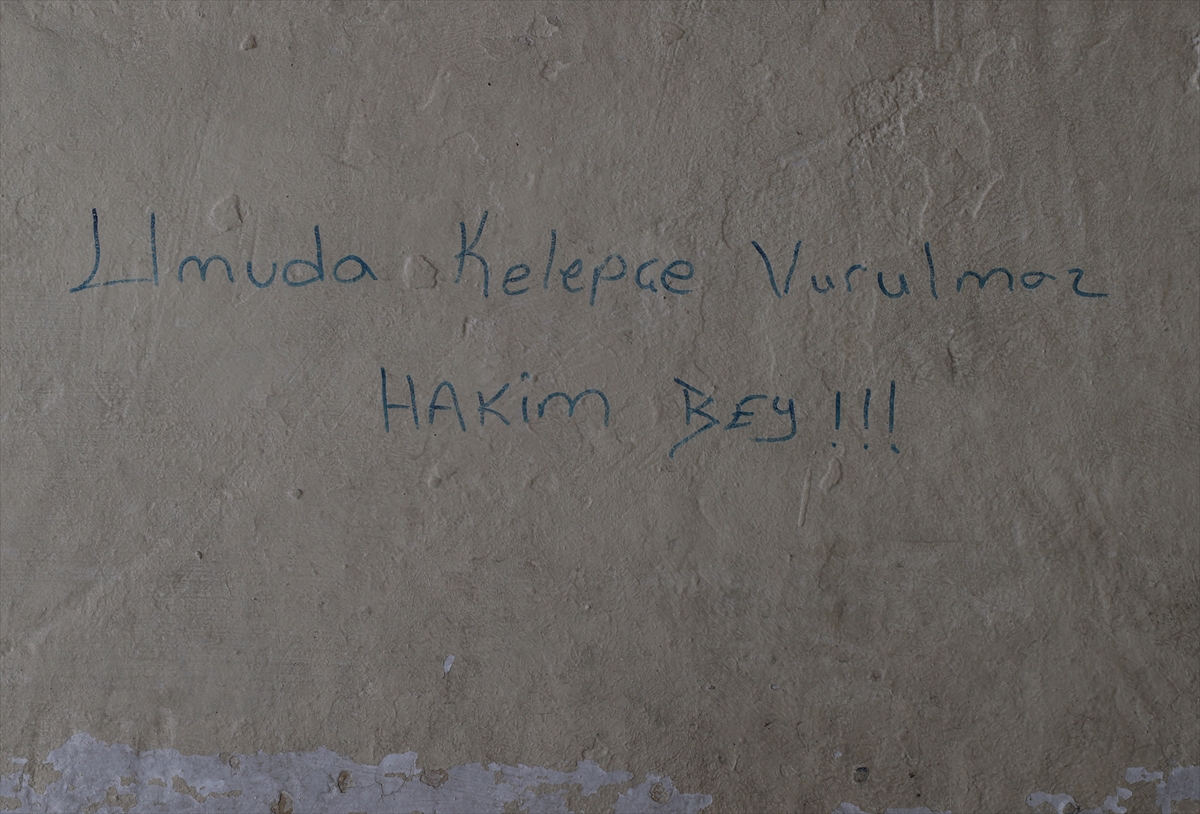 Umuda Kelepçe Vurulmaz
HAKiM BEy !!!